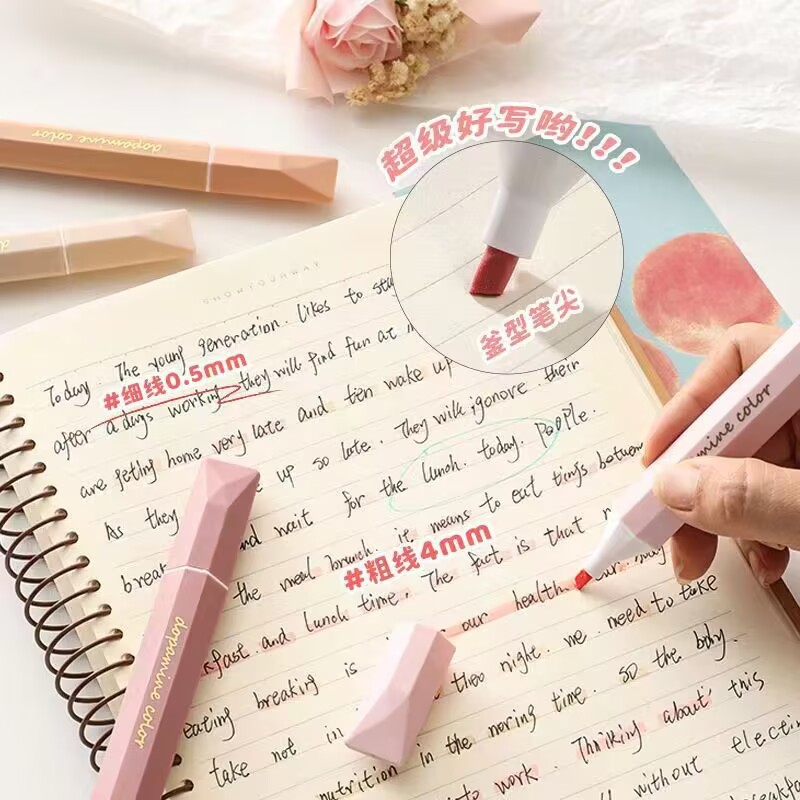 超级好写哟!!!
釜型笔尖
#细线0.5mm
#粗线4mm
dopamine color
dopamine color
mine color
SHOWYOURWAY
Today. The young generation. Likes to
after a days working they will find fun at
are geting home very late and ten wake up
up so late. They will igonove. their
As they and wait for the lunch. today. people.
break the meal brunch. it means to eat tings between
kfast and lunch time. The fact is that
eating breaking is our health. our
take not in theo night. we need to take
nutrition in the noring time. so the body.
to work. Thinking about this
will without electi